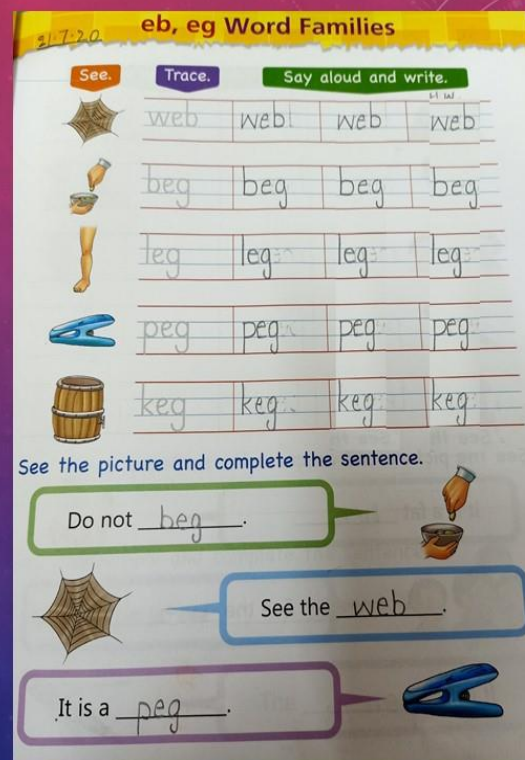 eb, eg Word Families
21.7.20
See. Trace. Say aloud and write.
H W
web web web web
beg beg beg beg
leg leg leg leg
peg peg peg peg
keg keg keg keg
See the picture and complete the sentence.
Do not beg.
See the web.
It is a peg.